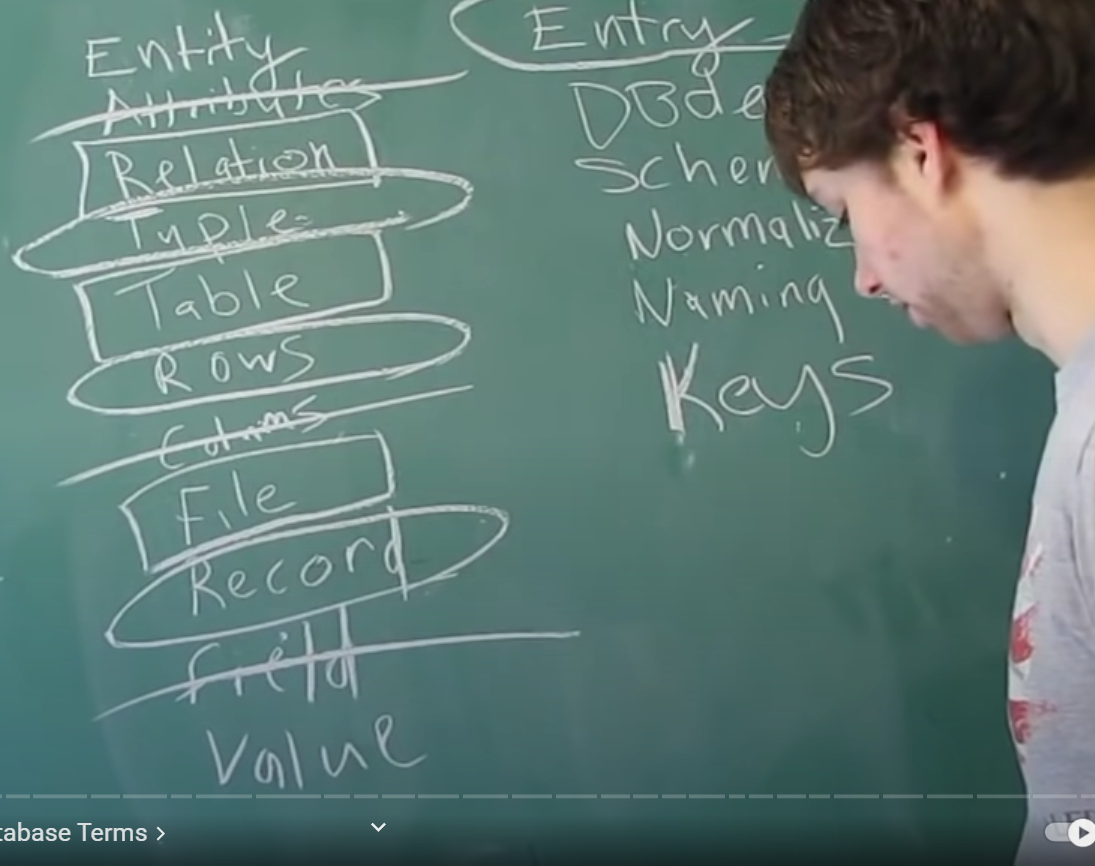 Entity
Attributes
Relation
Tuple
Table
Rows
Colums
File
Record
Field
Value
Entry
DBde
Schem
Normaliz
Naming
Keys
tabase Terms >